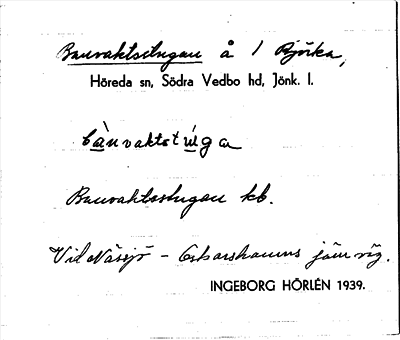 Banvaktsstugan å 1 Björka,
Höreda sn, Södra Vedbo hd, Jönk. l.
bànvaktstúga
Banvaktsstugan kb.
Vid Nässjö - Oskarshamns järnväg.
INGEBORG HÖRLÉN 1939.